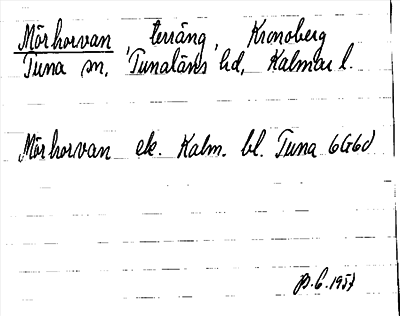 Mörhorvan, terräng, Kronoberg
Tuna sn, Tunaläns hd, Kalmar l.
Mörhorvan ek. Kalm. bl. Tuna 6G6d
1957